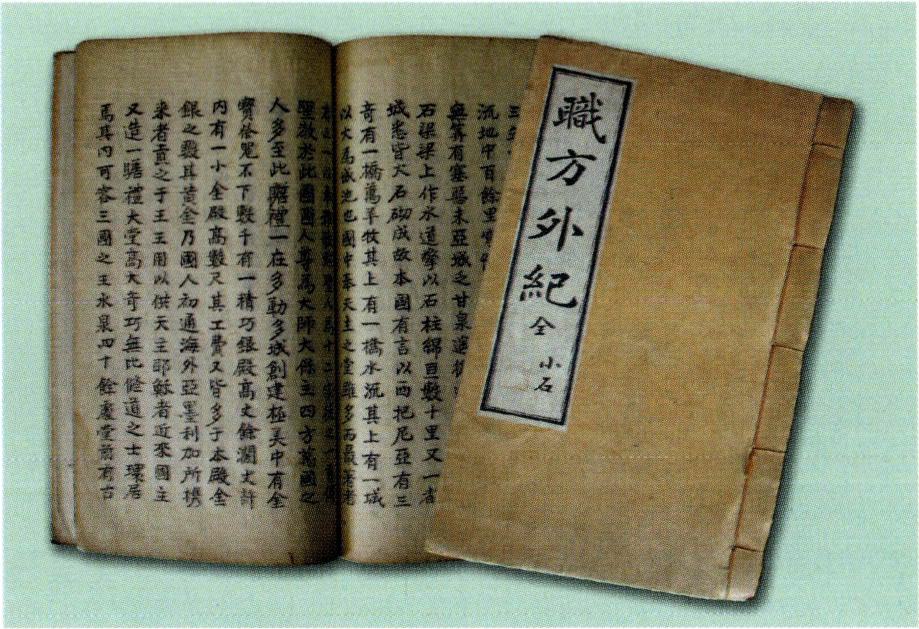 職方外紀
全
小石
流地中百餘里
無算有塞惡未亞城之甘泉遠從
石梁梁上作水道擎以石柱綿亘數十里又一省
城悉皆大石砌成故本國有言以西把尼亞有三
奇有一橋萬羊牧其上有一橋水流其上有一城
以火為城池也國中奉天主之堂雖多而最著者
聖教於此國國人尊為大師大保主四方萬國之
人多至此瞻禮一在多勒多城創建極美中有金
寶祭器不下數千有一精巧銀殿高丈餘濶丈許
内有一小金殿高數尺其工費又皆多于本殿金
銀之數其黃金乃國人初通海外亞墨利加所携
來者貢之于王王用以供天主耶穌者近來國主
又造一瞻禮大堂高大奇巧無比修道之士環居
焉其内可容三國之王水泉四十餘處堂前有古